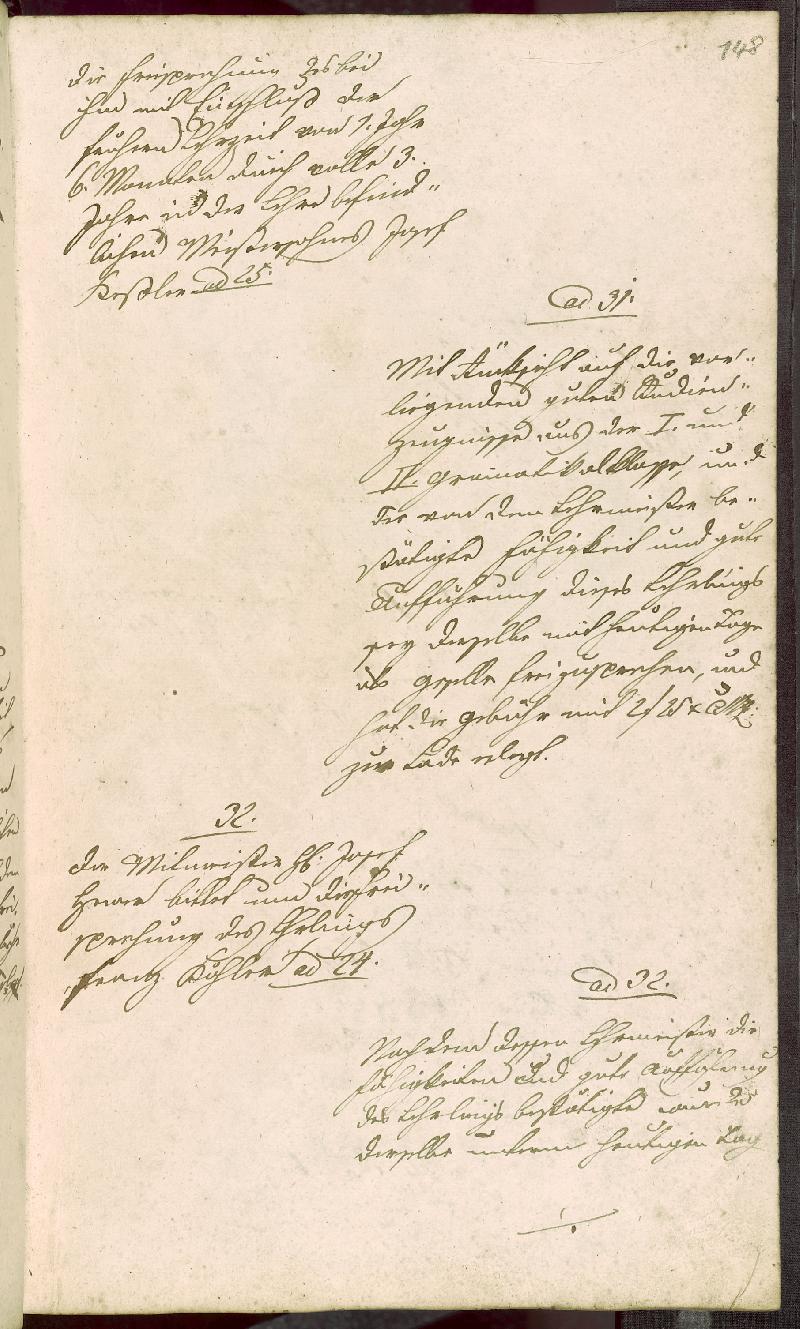 148
die Freisprechung des bei
ihm mit Einschluß der
frühern Lehrzeit von 1. Jahr
6. Monaten durch volle 3.
Jahre in der Lehre befind„
lichen Meistersohnes Josef
Keßler ad 25.
ad 31.
Mit Rücksicht auf die vor„
liegenden guten Studien„
zeugnisse aus der I. und
II. Gramatikalklasse, und
die von dem Lehrmeister be„
stätigte Fähigkeit und gute
Aufführung dieses Lehrlings
sey derselbe mit heutigen Tage
als Geselle freizusprechen, und
hat die Gebühr mit 2 f 25 x CMz.
zur Lade erlegt.
32.
Der Mitmeister H. Josef
bittet um die Frei„
sprechung des Lehrlings
Franz Köhler ad 24.
ad 32.
Nachdem dessen Lehrmeister die
Fähigkeiten und gute Aufführung
des Lehrlings bestätigte, wurde
derselbe unterm heutigen Tag
./.